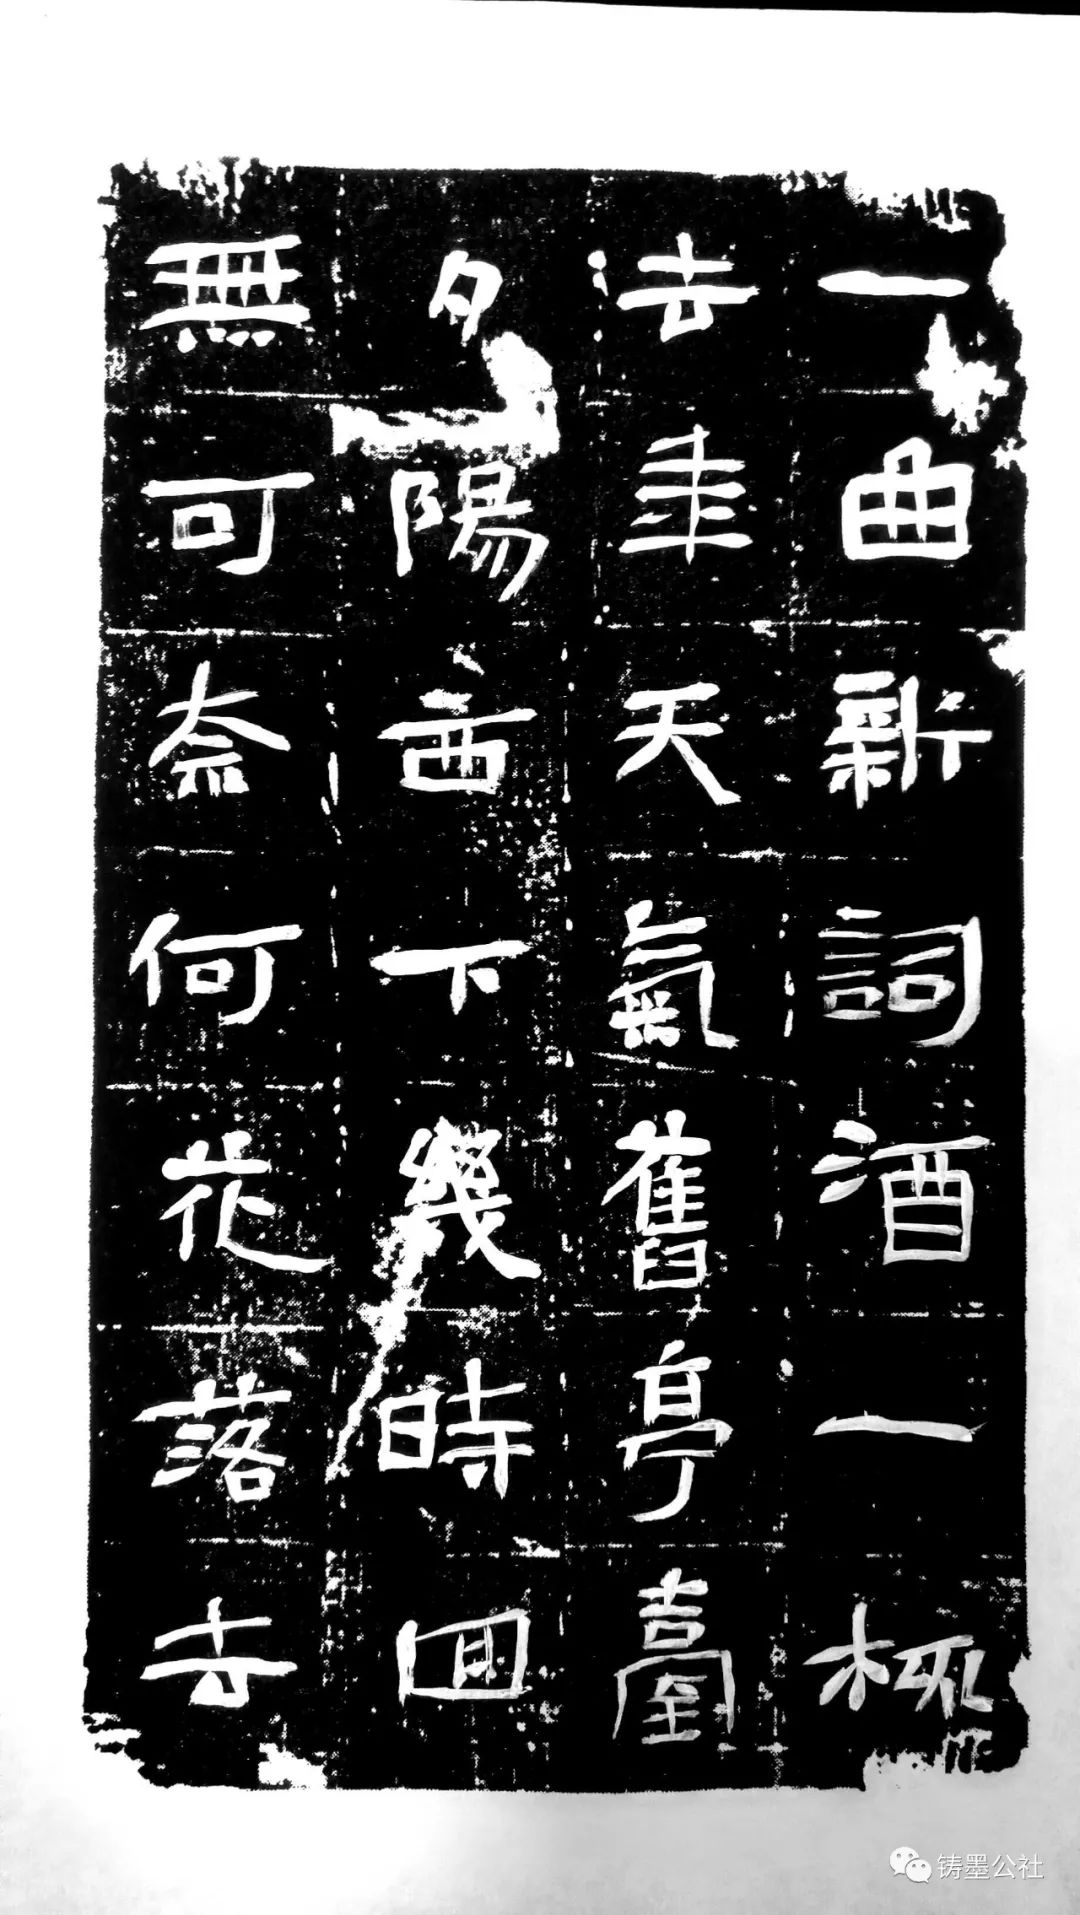 一曲新詞酒一桮
去年天氣舊亭臺
夕陽西下幾時回
無可奈何花落去
铸墨公社